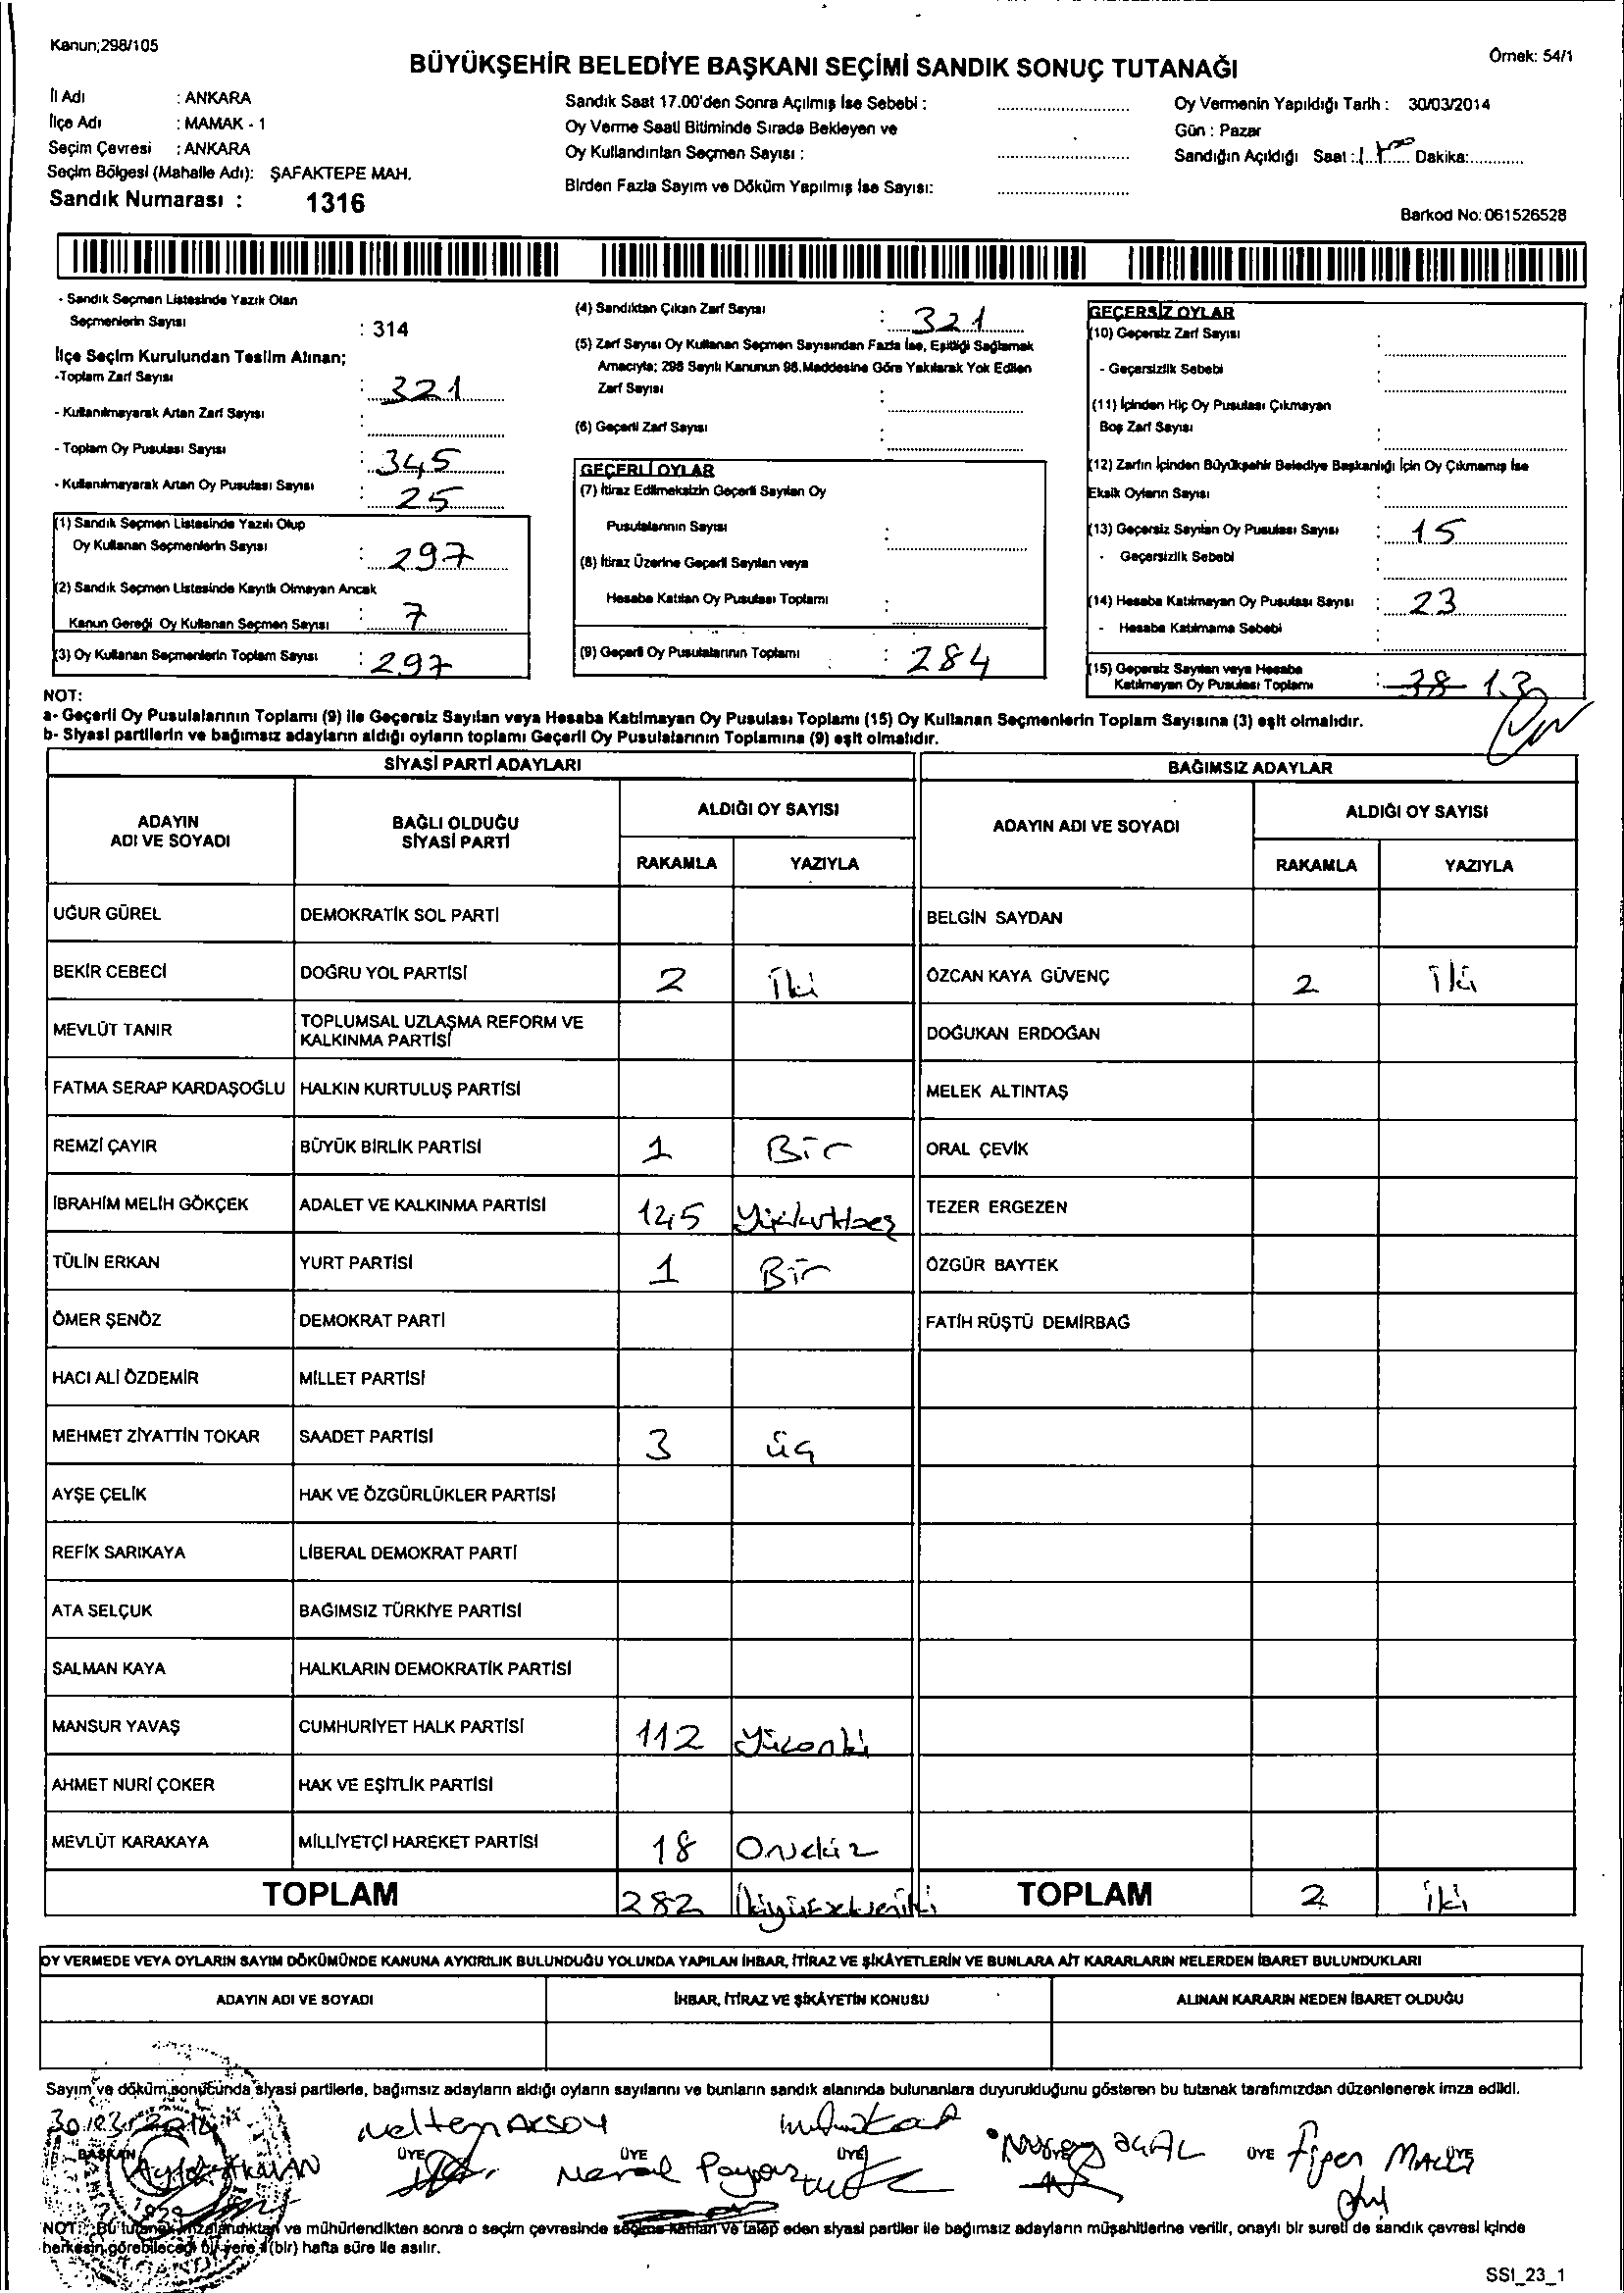 Kanun;298/105
Örnek: 54/1
BÜYÜKŞEHİR BELEDİYE BAŞKANI SEÇİMİ SANDIK SONUÇ TUTANAĞI
İl Adı : ANKARA
İlçe Adı : MAMAK - 1
Seçim Çevresi : ANKARA
Seçim Bölgesi (Mahalle Adı): ŞAFAKTEPE MAH.
Sandık Numarası : 1316
Sandık Saat 17.00'den Sonra Açılmış İse Sebebi :
Oy Verme Saati Bitiminde Sırada Bekleyen ve
Oy Kullandırılan Seçmen Sayısı :
Birden Fazla Sayım ve Döküm Yapılmış İse Sayısı:
Oy Vermenin Yapıldığı Tarih : 30/03/2014
Gün : Pazar
Sandığın Açıldığı Saat : Dakika:
Barkod No: 061526528
- Sandık Seçmen Listesinde Yazılı Olan
Seçmenlerin Sayısı : 314
İlçe Seçim Kurulundan Teslim Alınan;
-Toplam Zarf Sayısı : 321
- Kullanılmayarak Artan Zarf Sayısı :
- Toplam Oy Pusulası Sayısı : 345
- Kullanılmayarak Artan Oy Pusulası Sayısı : 25
(1) Sandık Seçmen Listesinde Yazılı Olup
Oy Kullanan Seçmenlerin Sayısı : 297
(2) Sandık Seçmen Listesinde Kayıtlı Olmayan Ancak
Kanun Gereği Oy Kullanan Seçmen Sayısı : 7
(3) Oy Kullanan Seçmenlerin Toplam Sayısı : 297
(4) Sandıktan Çıkan Zarf Sayısı : 321
(5) Zarf Sayısı Oy Kullanan Seçmen Sayısından Fazla İse, Eşitliği Sağlamak
Amacıyla; 298 Sayılı Kanunun 98.Maddesine Göre Yakılarak Yok Edilen
Zarf Sayısı :
(6) Geçerli Zarf Sayısı :
GEÇERLİ OYLAR
(7) İtiraz Edilmeksizin Geçerli Sayılan Oy
Pusulalarının Sayısı :
(8) İtiraz Üzerine Geçerli Sayılan veya
Hesaba Katılan Oy Pusulası Toplamı :
(9) Geçerli Oy Pusulalarının Toplamı : 284
GEÇERSİZ OYLAR
(10) Geçersiz Zarf Sayısı :
- Geçersizlik Sebebi :
(11) İçinden Hiç Oy Pusulası Çıkmayan
Boş Zarf Sayısı :
(12) Zarfın İçinden Büyükşehir Belediye Başkanlığı İçin Oy Çıkmamış İse
Eksik Oyların Sayısı :
(13) Geçersiz Sayılan Oy Pusulası Sayısı : 15
- Geçersizlik Sebebi :
(14) Hesaba Katılmayan Oy Pusulası Sayısı : 23
- Hesaba Katılmama Sebebi :
(15) Geçersiz Sayılan veya Hesaba
Katılmayan Oy Pusulası Toplamı : 38 13
NOT:
a- Geçerli Oy Pusulalarının Toplamı (9) ile Geçersiz Sayılan veya Hesaba Katılmayan Oy Pusulası Toplamı (15) Oy Kullanan Seçmenlerin Toplam Sayısına (3) eşit olmalıdır.
b- Siyasi partilerin ve bağımsız adayların aldığı oyların toplamı Geçerli Oy Pusulalarının Toplamına (9) eşit olmalıdır.
SİYASİ PARTİ ADAYLARI
ADAYIN ADI VE SOYADI BAĞLI OLDUĞU SİYASİ PARTİ ALDIĞI OY SAYISI
RAKAMLA YAZIYLA
UĞUR GÜREL DEMOKRATİK SOL PARTİ
BEKİR CEBECİ DOĞRU YOL PARTİSİ 2 İki
MEVLÜT TANIR TOPLUMSAL UZLAŞMA REFORM VE KALKINMA PARTİSİ
FATMA SERAP KARDAŞOĞLU HALKIN KURTULUŞ PARTİSİ
REMZİ ÇAYIR BÜYÜK BİRLİK PARTİSİ 1 Bir
İBRAHİM MELİH GÖKÇEK ADALET VE KALKINMA PARTİSİ 145
TÜLİN ERKAN YURT PARTİSİ 1 Bir
ÖMER ŞENÖZ DEMOKRAT PARTİ
HACI ALİ ÖZDEMİR MİLLET PARTİSİ
MEHMET ZİYATTİN TOKAR SAADET PARTİSİ 3 üç
AYŞE ÇELİK HAK VE ÖZGÜRLÜKLER PARTİSİ
REFİK SARIKAYA LİBERAL DEMOKRAT PARTİ
ATA SELÇUK BAĞIMSIZ TÜRKİYE PARTİSİ
SALMAN KAYA HALKLARIN DEMOKRATİK PARTİSİ
MANSUR YAVAŞ CUMHURİYET HALK PARTİSİ 112 Yüzoniki
AHMET NURİ ÇOKER HAK VE EŞİTLİK PARTİSİ
MEVLÜT KARAKAYA MİLLİYETÇİ HAREKET PARTİSİ 18 Onsekiz
TOPLAM 282 İkiyüzsekseniki
BAĞIMSIZ ADAYLAR
ADAYIN ADI VE SOYADI ALDIĞI OY SAYISI
RAKAMLA YAZIYLA
BELGİN SAYDAN
ÖZCAN KAYA GÜVENÇ 2 iki
DOĞUKAN ERDOĞAN
MELEK ALTINTAŞ
ORAL ÇEVİK
TEZER ERGEZEN
ÖZGÜR BAYTEK
FATİH RÜŞTÜ DEMİRBAĞ
TOPLAM 2 iki
OY VERMEDE VEYA OYLARIN SAYIM DÖKÜMÜNDE KANUNA AYKIRILIK BULUNDUĞU YOLUNDA YAPILAN İHBAR, İTİRAZ VE ŞİKÂYETLERİN VE BUNLARA AİT KARARLARIN NELERDEN İBARET BULUNDUKLARI
ADAYIN ADI VE SOYADI İHBAR, İTİRAZ VE ŞİKÂYETİN KONUSU ALINAN KARARIN NEDEN İBARET OLDUĞU
Sayım ve döküm sonucunda siyasi partilerle, bağımsız adayların aldığı oyların sayılarını ve bunların sandık alanında bulunanlara duyurulduğunu gösteren bu tutanak tarafımızdan düzenlenerek imza edildi.
30/03/2014 Meltem AKSOY
BAŞKAN ÜYE ÜYE ÜYE ÜYE ÜYE
Meral
NOT: Bu tutanak imzalandıktan ve mühürlendikten sonra o seçim çevresinde seçime katılan ve talep eden siyasi partiler ile bağımsız adayların müşahitlerine verilir, onaylı bir sureti de sandık çevresi içinde
herkesin görebileceği bir yere 1(bir) hafta süre ile asılır.
SSI_23_1